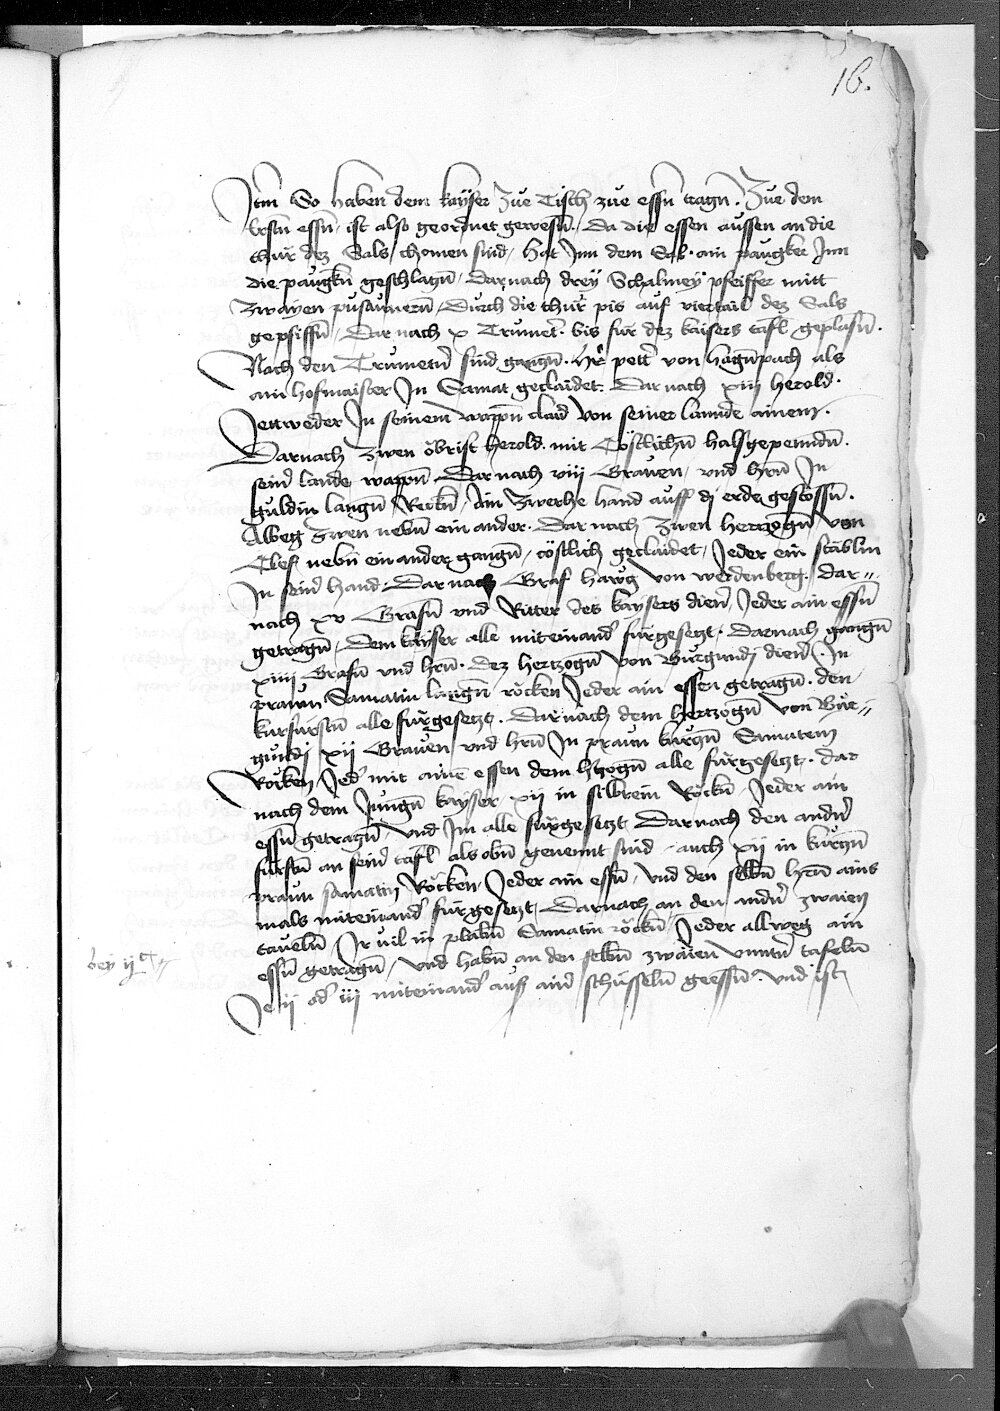 16.
Itm̄ So haben dem kaÿser zue Tisch zue essn̄ tragn̄. Zue dem
erstn̄ essn̄ ist also geordnet gewesn̄. Da die essen aussen an die
thür dez Sals chomen sind, Hat Jnn dem Sal ain paugker Jnn
die paugkn̄ geschlagn̄, Darnach dreÿ Schalmeÿ pfeiffer mitt
Zwayen pusaunern̄, Durch die thür pis auf viertail dez Sals
gepfiffn̄, Dar nach x Trumet̄. bis für dez kaisers tafl geplasn̄.
Nach den Trumetn̄ sind gangn̄. Hr̄ pett̄ von hagn̄pach als
ain hofmaister Jn Samat geclaidet. Dar nach xiij herold.
Jettweder Jn seinem wappn̄ claid von seiner lannde ainem.
Darnach Zwen öbrist herold. mit Cöstlichn̄ halsgepenndn̄.
sein̄ lande wappn̄ Dar nach viij Grauen, vnd hrn̄ Jn
guldin langn̄ Röckn̄, Ain Zwerche hand auff dj erde gestossn̄.
Albeg Zwen nebn̄ ein ander. Dar nach Zwen hertzogn̄ von
Clef nebn̄ ein ander gangn̄, cöstlich geclaidet, Jeder ein stäblin
Jn sein̄ hand. Dar nach Graf hawg von werdenberg. dar〃
nach xv Grafn̄ vnd Ritter des kaysers dien̄, Jeder ain essn̄
getragn̄, Dem kaÿser alle miteinand̄ fürgesetzt. Darnach gangn̄
xiiij Grafn̄ vnd hrn̄. dez hertzogn̄ von Burgundj dien̄. Jn
praun Samatin langn̄ röcken Jeder ain essen getragn̄. den
kurfürstn̄ alle fürgesetzt. Dar nach dem hertzogn̄ von Bur〃
gundj xij Grauen vnd hrn̄ Jn praun kurtzn̄ Samatem
Röcken Jed̄ mit ainē essen dem hrzogn̄ alle fürgesetzt. dar
nach dem Jungn̄ kayser, xij in silbrein Röckn̄, Jeder ain
essn̄ getragn̄, vnd Jm alle fürgesetzt Darnach den andn̄
fürstn̄ an sein̄ tafl als obn̄ genennt sind, auch xij in kurtzn̄
praun samatin Röcken Jeder ain essn̄, vnd den selbn̄ hrn̄ ains
mals miteinand̄ fürgesetzt, Darnach an den andn̄ zwaien
tauelln̄, Jr vil in plabn̄ Samatin röckn̄, Jeder allweg ain
essn̄ getragn̄, vnd habn̄ an den selbn̄ zwaien vnntn̄ tafeln̄
Je ij od̄ iij miteinand̄ aus ain̄ schüsseln̄ geessn̄. vnd ist
beÿ ij